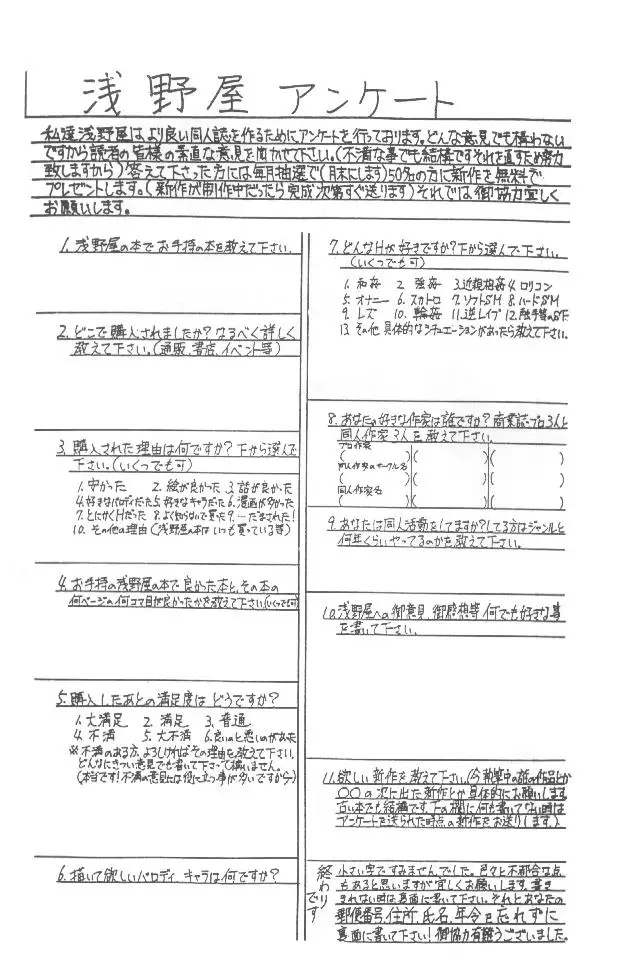 浅野屋 アンケート
私達浅野屋はより良い同人誌を作るためにアンケートを行っております。どんな意見でも構わない
ですから読者の皆様の素直な意見を聞かせて下さい。(不満な事でも結構ですそれを直すため努力
致しますから)答えて下さった方には毎月抽選で(月末にします)50名の方に新作を無料で
プレゼントします。(新作が制作中だったら完成次第すぐ送ります)それでは御協力宜しく
お願いします。
1. 浅野屋の本でお手持の本を教えて下さい.
2. どこで購入されましたか?なるべく詳しく
教えて下さい。(通販、書店、イベント等)
3. 購入された理由は何ですか?下から選んで
下さい。(いくつでも可)
1. 安かった 2. 絵が良かった 3. 話が良かった
4. 好きなパロディだった 5. 好きなキャラだった 6. 漫画が多かった
7. とにかくHだった 8. よく知らないで買った 9. …だまされた!
10. その他の理由(浅野屋の本はいつも買っている等)
4. お手持の浅野屋の本で良かった本と、その本の
何ページの何コマ目が良かったかを教えて下さい。(いくつでも可)
5. 購入したあとの満足度はどうですか?
1. 大満足 2. 満足 3. 普通
4. 不満 5. 大不満 6. 良いのと悪いのがあった
※不満のある方、よろしければその理由を教えて下さい.
どんなにきつい意見でも書いて下さって構いません。
(本当です!不満の意見には役に立つ事が多いですから)
6. 描いて欲しいパロディ、キャラは何ですか?
7. どんなHが好きですか?下から選んで下さい。
(いくつでも可)
1. 和姦 2. 強姦 3. 近親相姦 4. ロリコン
5. オナニー 6. スカトロ 7. ソフトSM 8. ハードSM
9. レズ 10. 輪姦 11. 逆レイプ 12. 触手等のSF
13. その他 具体的なシチュエーションがあったら教えて下さい.
8. あなたの好きな作家は誰ですか?商業誌・プロ3人と
同人作家3人を教えて下さい.
プロ作家
( )( )( )
同人作家のサークル名
( )( )( )
同人作家名
( )( )( )
9. あなたは同人活動をしてますか?してる方はジャンルと
何年くらいやってるのかを教えて下さい.
10. 浅野屋への御意見、御感想等何でも好きな事
を書いて下さい.
11. 欲しい新作を教えて下さい。(今執筆中の誰の作品とか
〇〇の次に出た新作とか具体的にお願いします
古い本でも結構です。下の欄に何も書いてない時は
アンケートを送られた時点の新作をお送りします。)
終わりです
小さい字ですみませんでした。色々と不都合な点
もあると思いますが宜しくお願いします。書き
きれない時は裏面に書いて下さい。それとあなたの
郵便番号、住所、氏名、年令を忘れずに
裏面に書いて下さい!御協力有難うございました。